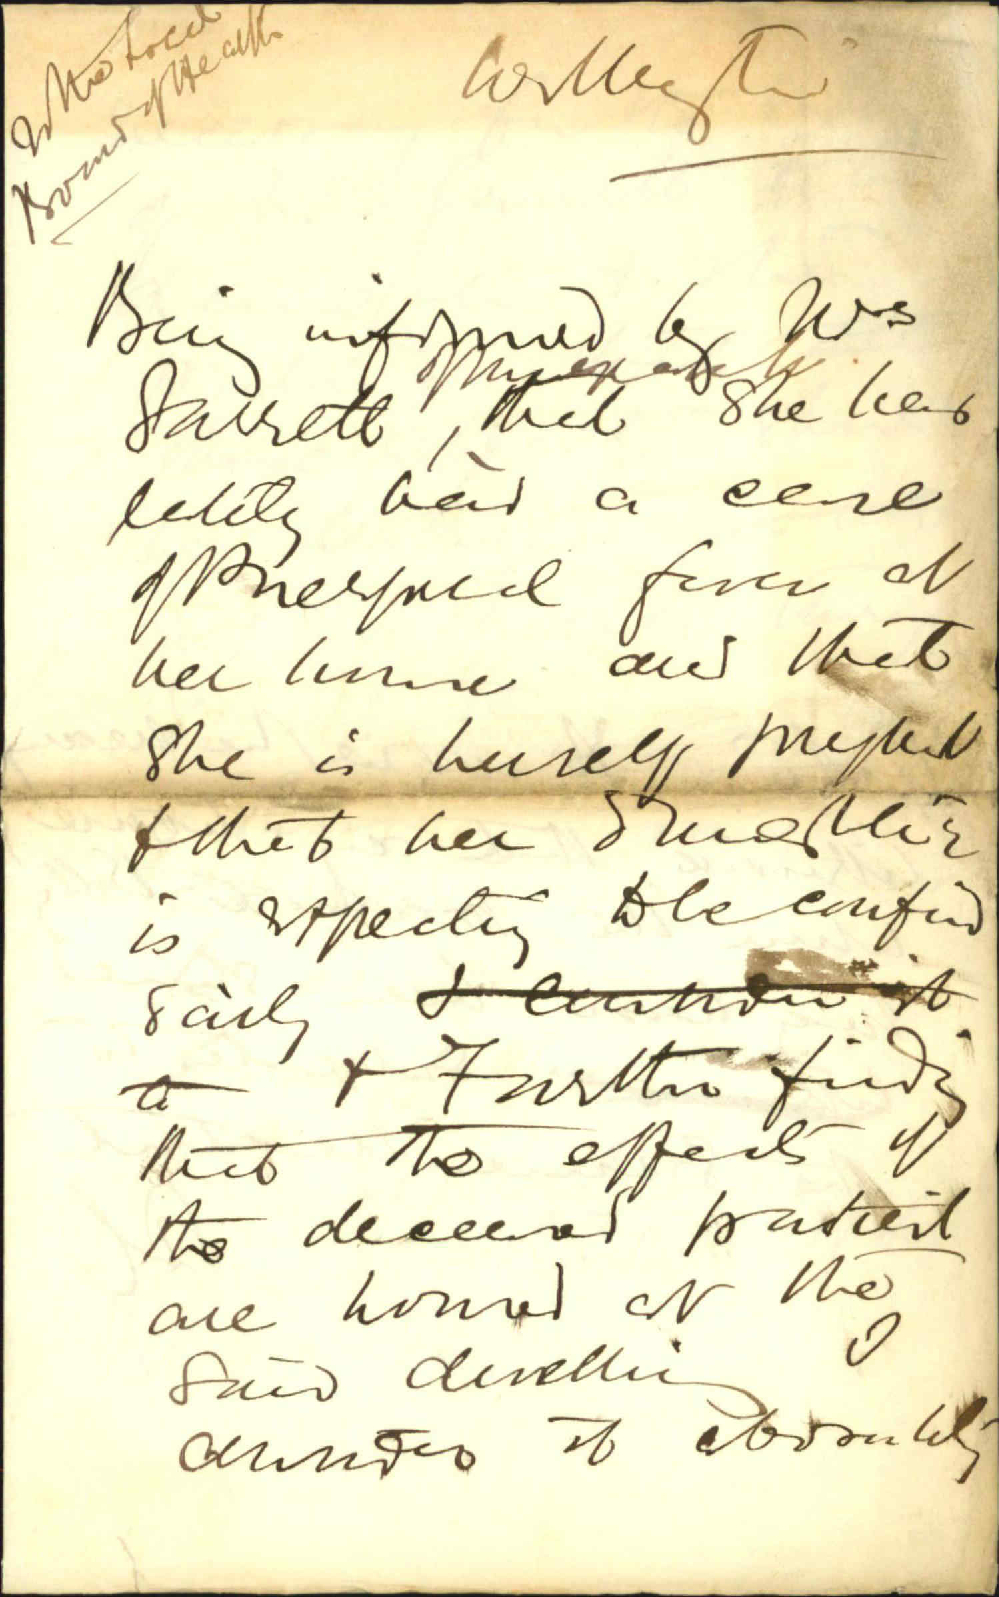 To the Local
Board of Health
Wellington
Being informed by Mrs
Garrett, that she has
lately had a case
of Puerperal fever at
her house and that
she is herself
& that her
is expecting to be confined
Early & consider it
a & Further finding
that the effects of
the deceased patient
are housed at the
Said dwelling I
consider it absolutely